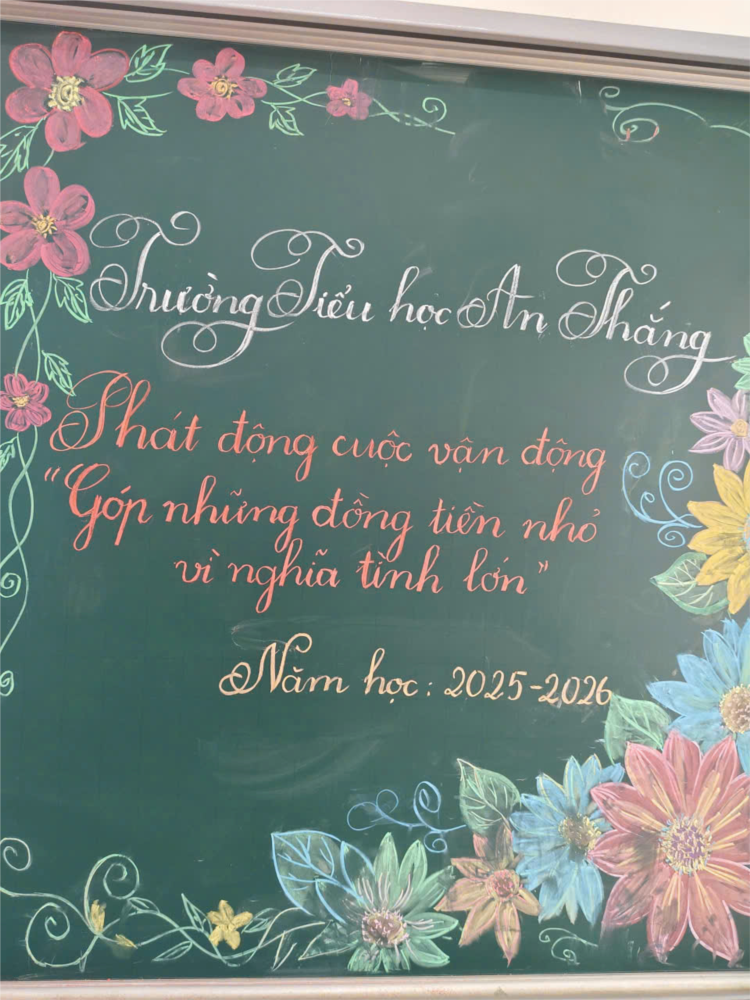 Trường Tiểu học An Thắng
Phát động cuộc vận động
"Góp những đồng tiền nhỏ
vì nghĩa tình lớn"
Năm học: 2025-2026